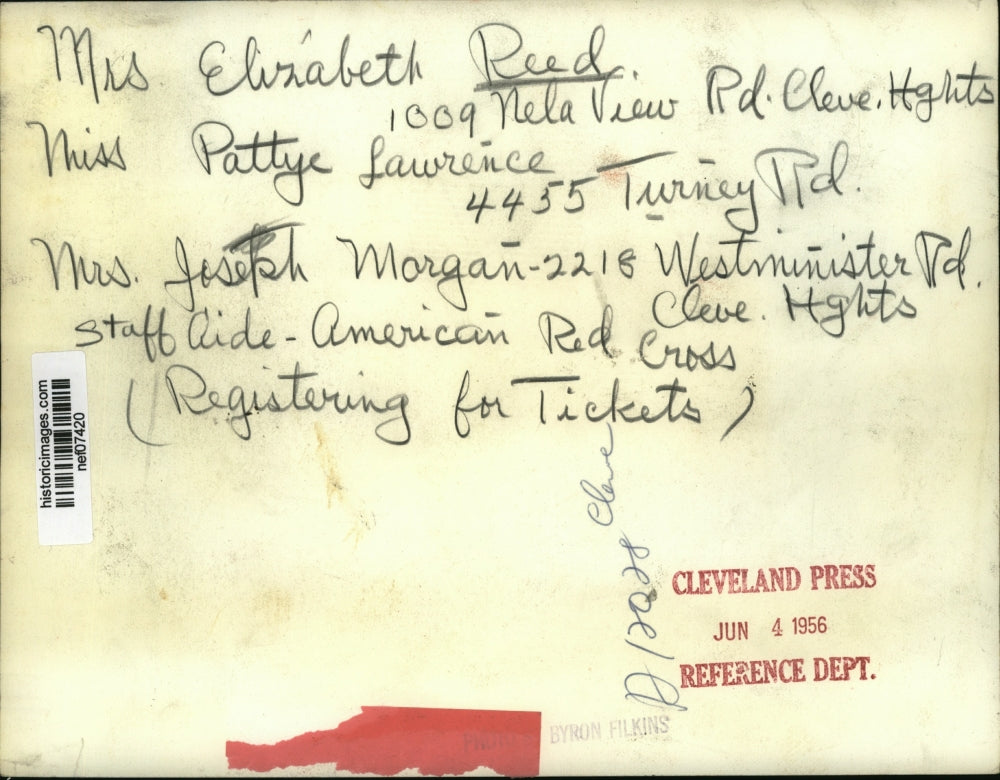 Mrs Elizabeth Reed.
1009 Nela View Rd. Cleve. Hghts
Miss Pattye Lawrence
4455 Turney Rd.
Mrs. Joseph Morgan-2218 Westminister Rd.
Cleve. Hghts
Staff Aide - American Red Cross
(Registering for Tickets)
historicimages.com
nef07420
Cleve
CLEVELAND PRESS
JUN 4 1956
REFERENCE DEPT.
PHOTO BY BYRON FILKINS